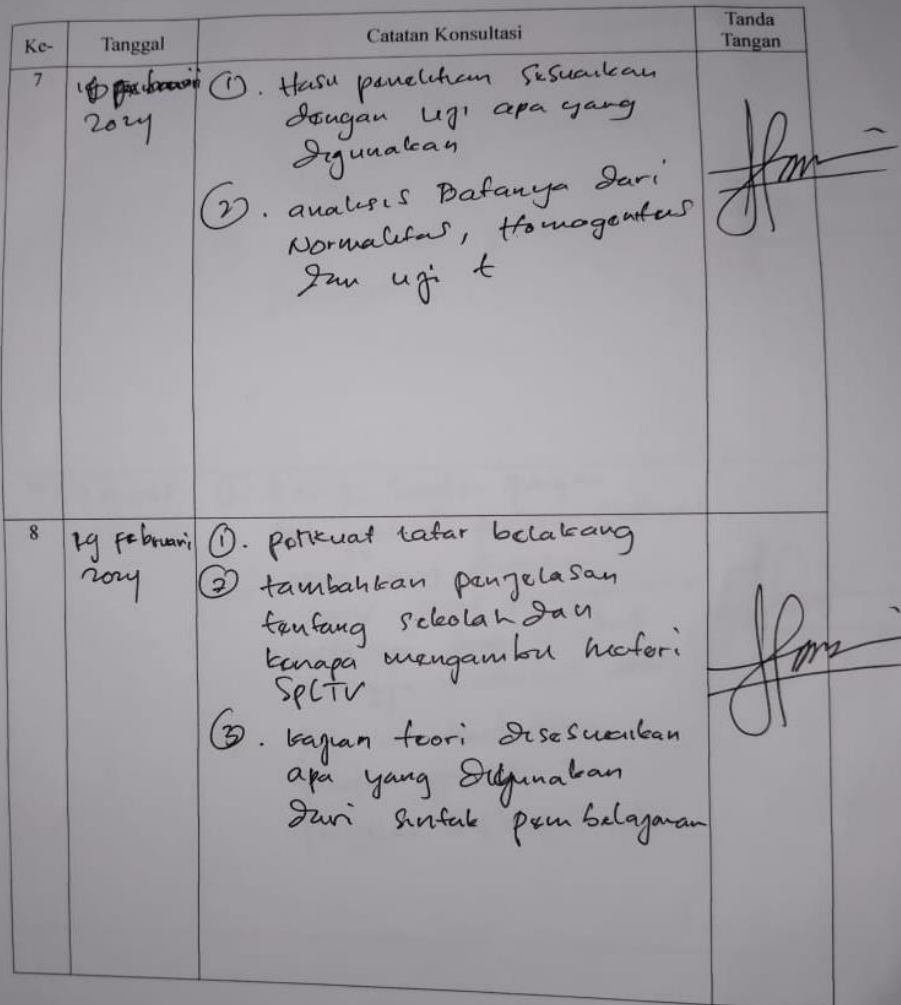 Ke-
Tanggal
Catatan Konsultasi
Tanda
Tangan
7
2024
①. Hasil penelitian sesuaikan
dengan uji apa yang
digunakan
②. analisis Datanya dari
Normalitas, Homogenitas
dan uji t
8
29 februari
2024
①. perkuat latar belakang
② tambahkan penjelasan
tentang sekolah dan
kenapa mengambil materi
SPLTV
③. kajian teori disesuaikan
apa yang digunakan
dari sintak pembelajaran